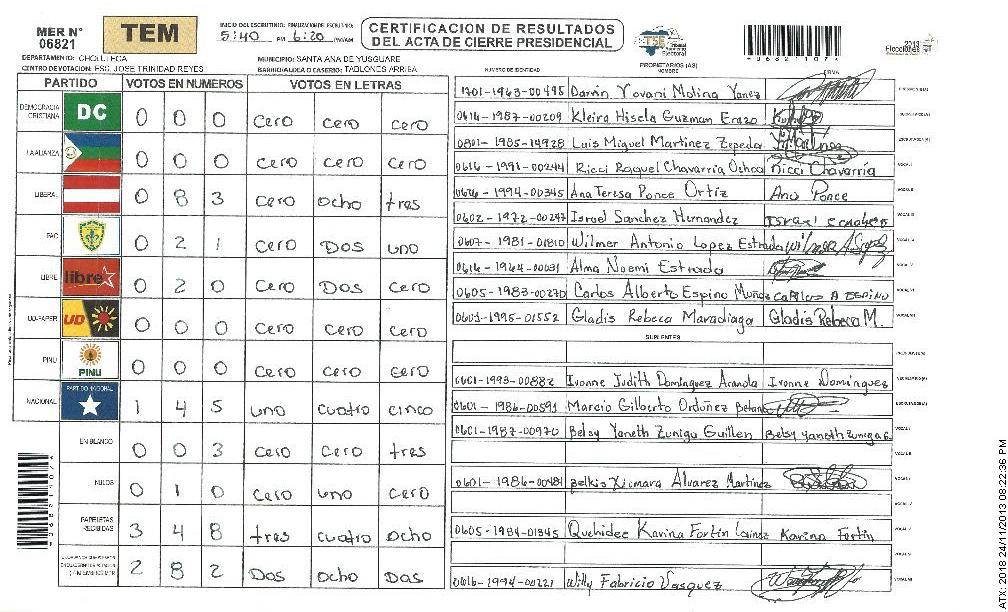 MER N° 06821
TEM
INICIO DEL ESCRUTINIO: FINALIZACION DEL ESCRUTINIO:
5:40 PM 6:20 PM/AM
CERTIFICACION DE RESULTADOS
DEL ACTA DE CIERRE PRESIDENCIAL
TSE Tribunal Supremo Electoral
2013
Elecciones
*06821107*
DEPARTAMENTO: CHOLUTECA
MUNICIPIO: SANTA ANA DE YUSGUARE
CENTRO DE VOTACION: ESC. JOSE TRINIDAD REYES
BARRIO/ALDEA O CASERIO: TABLONES ARRIBA
PARTIDO VOTOS EN NUMEROS VOTOS EN LETRAS
DEMOCRACIA CRISTIANA DC 0 0 0 Cero Cero Cero
LA ALIANZA 0 0 0 Cero Cero Cero
LIBERAL 0 8 3 Cero ocho tres
PAC 0 2 1 Cero Dos uno
LIBRE libre 0 2 0 Cero Dos Cero
UD-FAPER UD 0 0 0 Cero Cero Cero
PINU PINU 0 0 0 Cero Cero Cero
NACIONAL PARTIDO NACIONAL 1 4 5 uno cuatro cinco
EN BLANCO 0 0 3 Cero Cero tres
NULOS 0 1 0 Cero uno Cero
PAPELETAS RECIBIDAS 3 4 8 tres cuatro ocho
2 8 2 Dos ocho Dos
NUMERO DE IDENTIDAD PROPIETARIOS (AS) NOMBRE FIRMA
1701-1963-00495 Darvin Yovani Molina Yanez
0616-1987-00209 Kleira Hisela Guzman Erazo
0801-1985-14928 Luis Miguel Martinez Zepeda
0616-1991-00244 Ricci Raquel Chavarria Ochoa Ricci Chavarría
0616-1994-00345 Ana Teresa Ponce Ortiz Ana Ponce
0602-1972-00247 Israel Sanchez Hernandez
0607-1981-01810 Wilmer Antonio Lopez Estrada
0616-1964-00031 Alma Noemi Estrada
0605-1983-00270 Carlos Alberto Espino Muñoz CARLOS A ESPINO
0601-1995-01552 Gladis Rebeca Maradiaga Gladis Rebeca M.
SUPLENTES
0601-1993-00882 Ivonne Judith Dominguez Aranda Ivonne Domínguez
0601-1986-00591 Marcio Gilberto Ordoñez
0601-1987-00970 Belsy Yaneth Zuniga Guillen Belsy Yaneth Zuniga G.
0601-1986-00481 Belkis Xiomara Alvarez Martinez
0605-1984-01345 Quehidee Karina Fortin Lainez Karina Fortin
0616-1994-00221 Willy Fabricio Vasquez
*06821107*
ATX: 2018 24/11/2013 08:22:36 PM